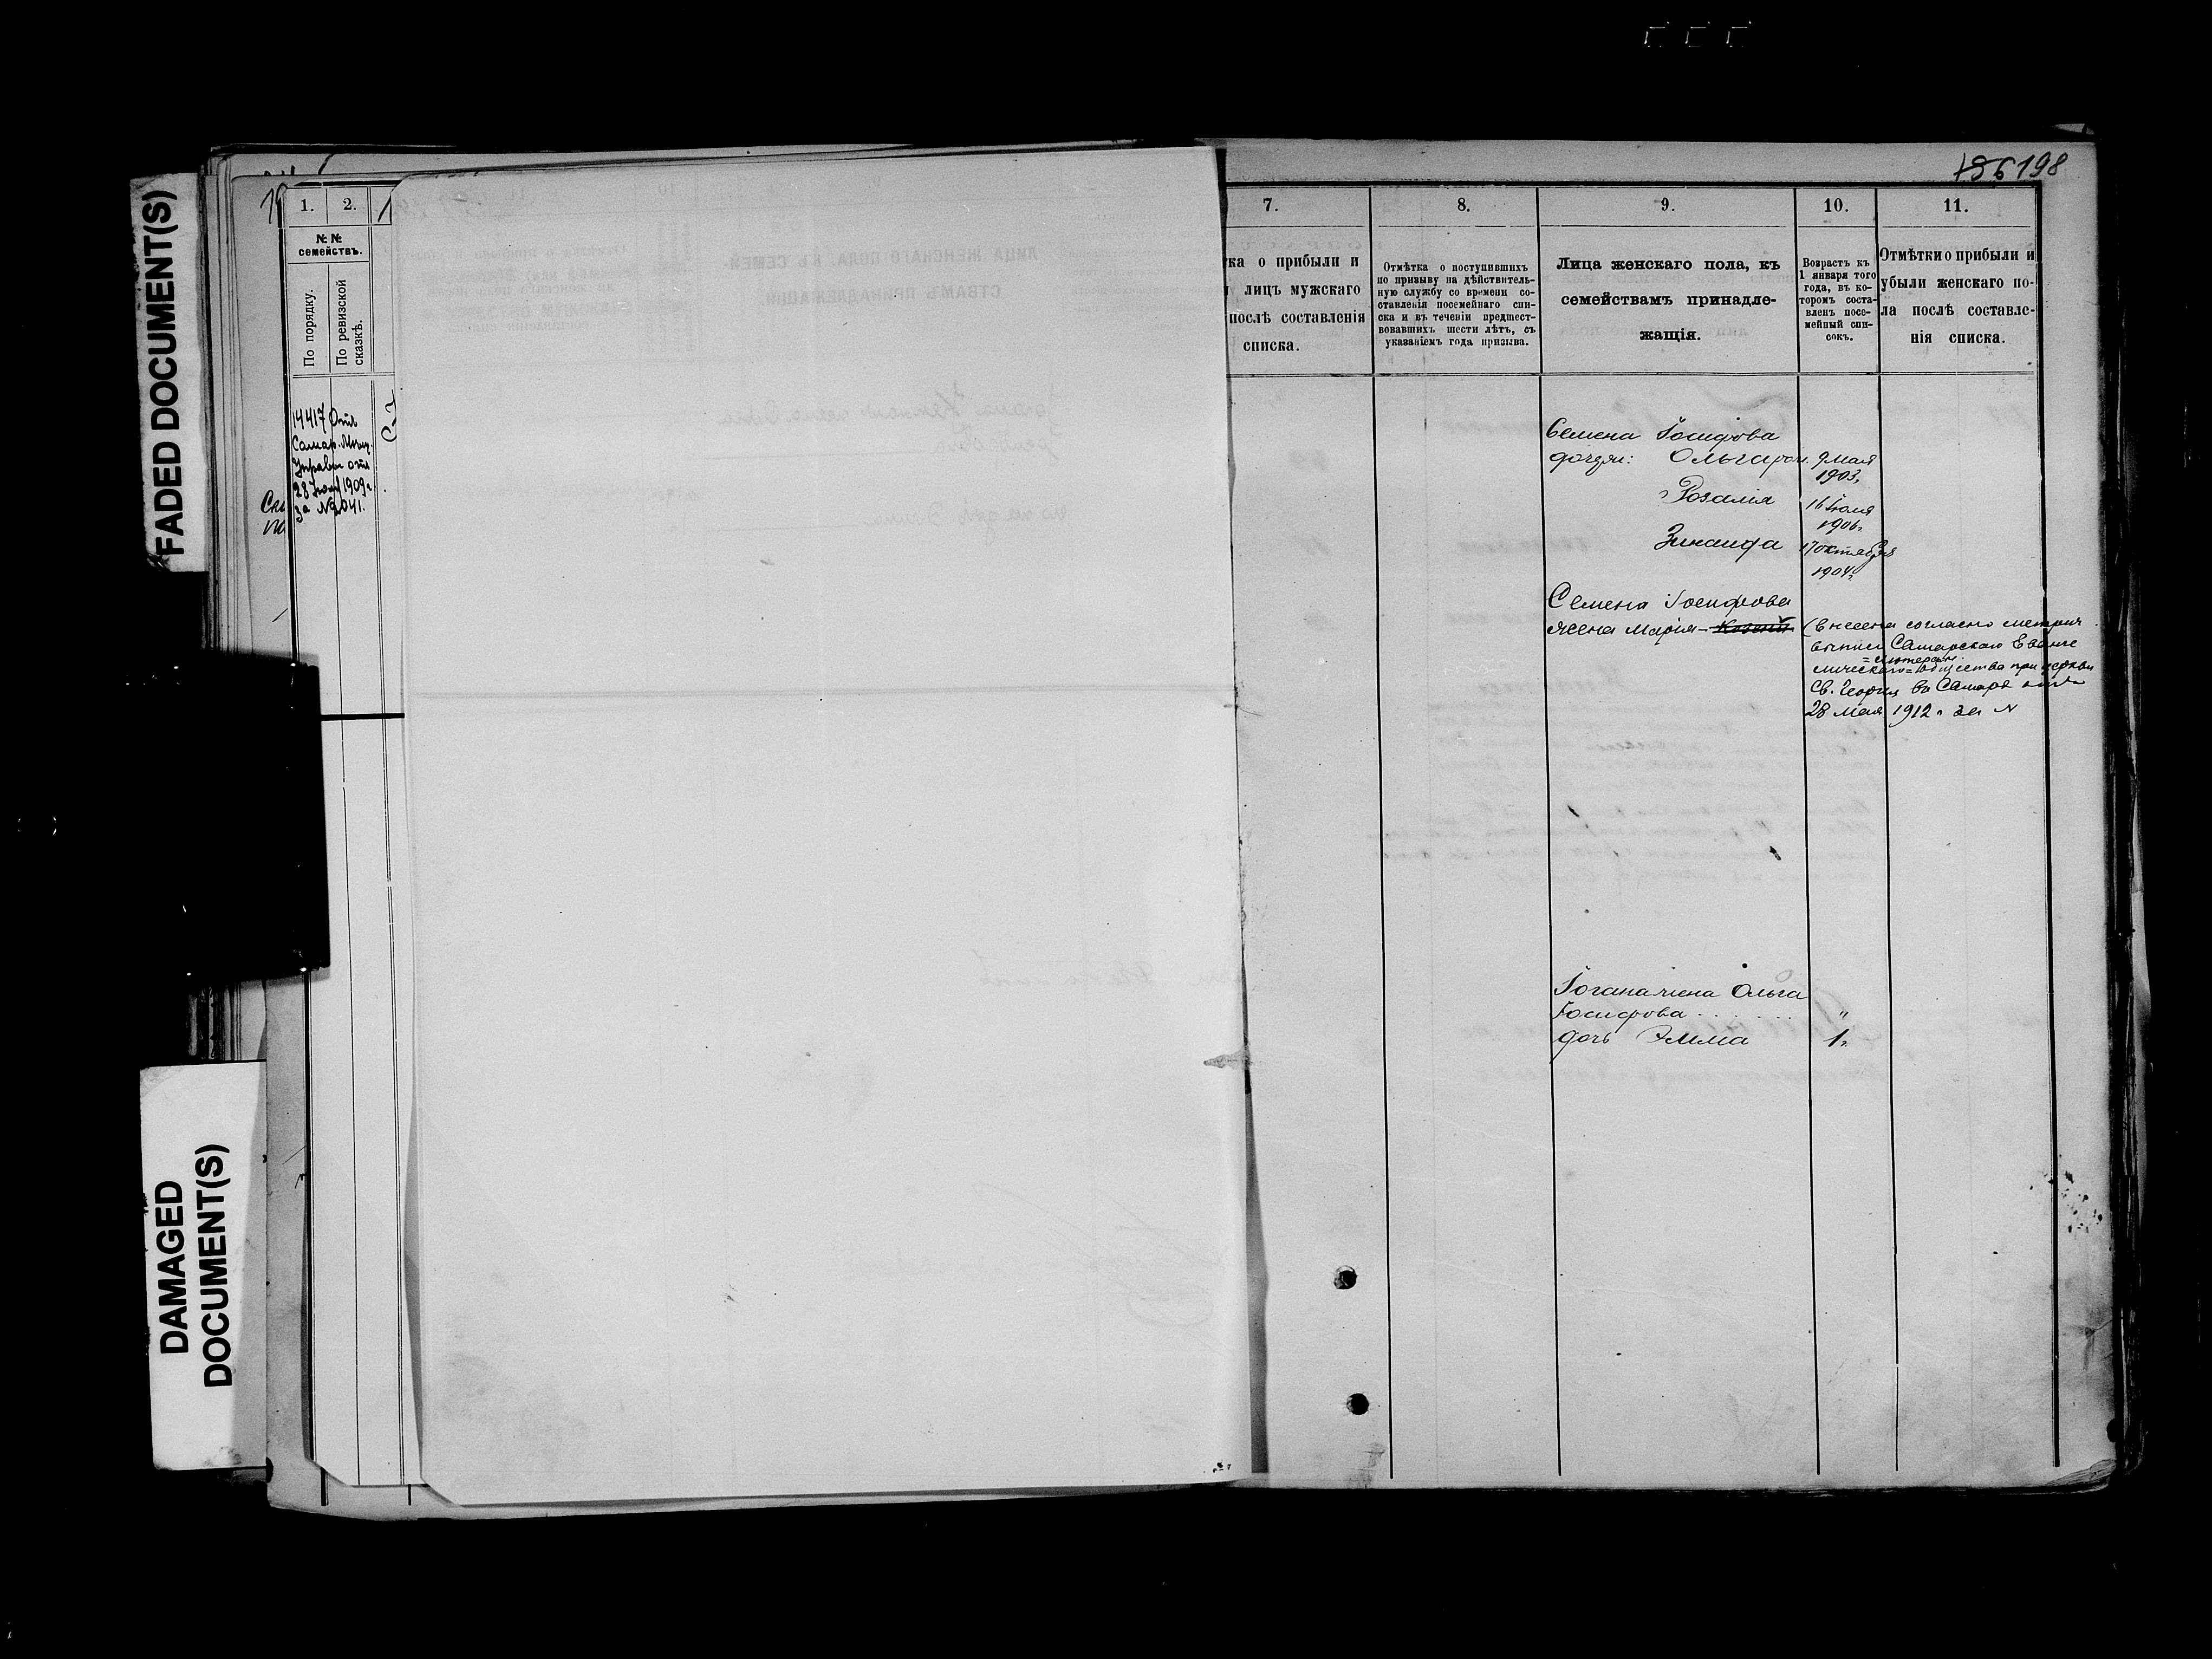 FADED DOCUMENT(S)
DAMAGED
DOCUMENT(S)
198
1.
2.
№ №
семействъ.
По порядку.
По ревизской
сказкѣ.
14417 Отн.
Самар. Мѣщ.
Управы отъ
28 1909 г.
За №
7.
ка о прибыли и
лицъ мужскаго
послѣ составленія
списка.
8.
Отмѣтка о поступившихъ
по призыву на дѣйствитель-
ную службу со времени со-
ставленія посемейнаго спи-
ска и въ теченіи предшест-
вовавшихъ шести лѣтъ, съ
указаніемъ года призыва.
9.
Лица женскаго пола, къ
семействамъ принадле-
жащія.
10.
Возрастъ къ
1 января того
года, въ ко-
торомъ соста-
вленъ посе-
мейный спи-
сокъ.
11.
Отмѣтки о прибыли и
убыли женскаго по-
ла послѣ составле-
нія списка.
Семена Іосифова
дочери: Ольга род. 9 мая
1903 г.
Розалія 16 Іюля
1906 г.
Зинаида 17 октября
1904 г.
Семена Іосифова
жена Марія (Внесена согласно метрич.
выписи Самарскаго Еванге
=лютеран.
лическаго= общества при церкви
Св. Георгія въ Самарѣ отъ
28 Мая 1912 г. за №
Іогана жена Ольга
Іосифова . . . . . "
дочь Эмма 1 г.